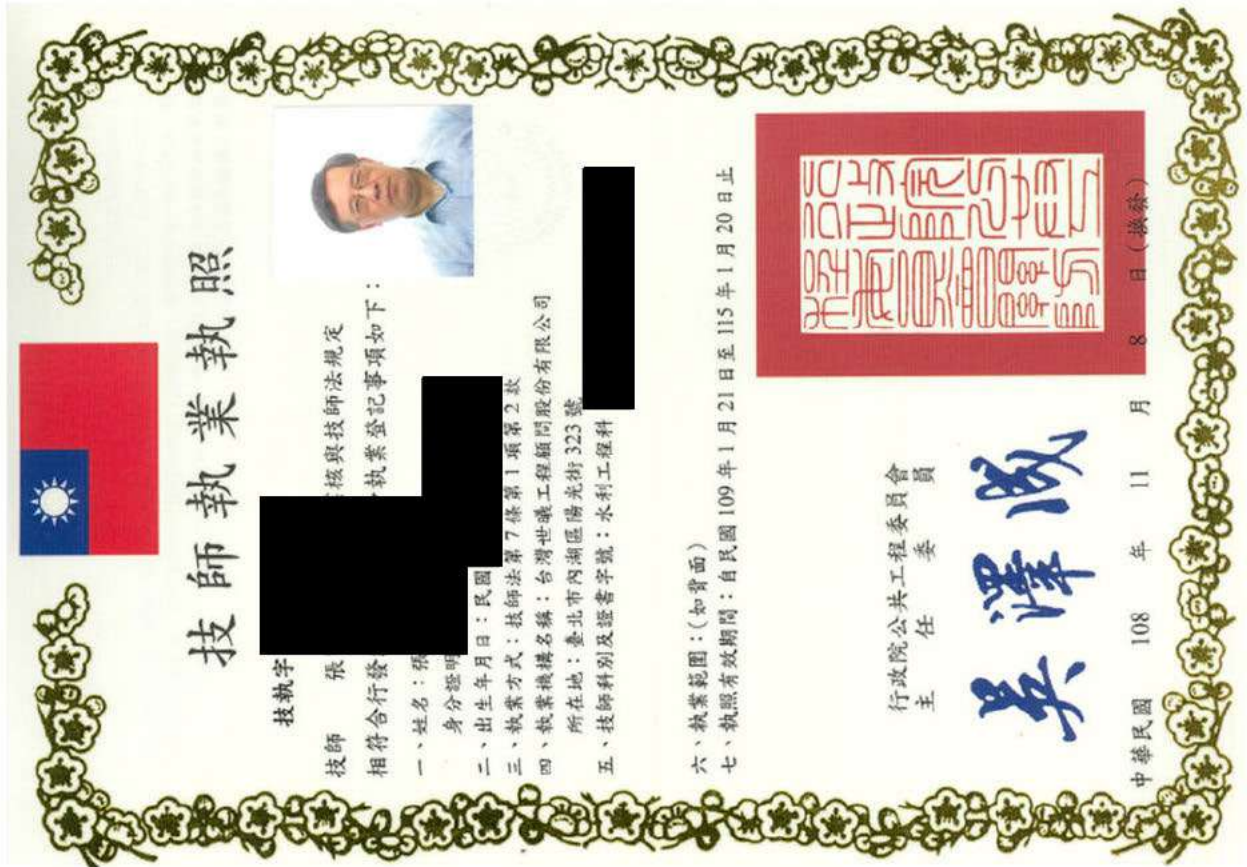 技師執業執照
技執字
技師 張 核與技師法規定
相符合行發 執業登記事項如下：
一、姓名：張
身分證明
二、出生年月日：民國
三、執業方式：技師法第7條第1項第2款
四、執業機構名稱：台灣世曦工程顧問股份有限公司
所在地：臺北市內湖區陽光街323號
五、技師科別及證書字號：水利工程科
六、執業範圍：（如背面）
七、執照有效期間：自民國109年1月21日至115年1月20日止
行政院公共工程委員會
主任委員
吳澤成
中華民國 108 年 11 月 8 日（換發）